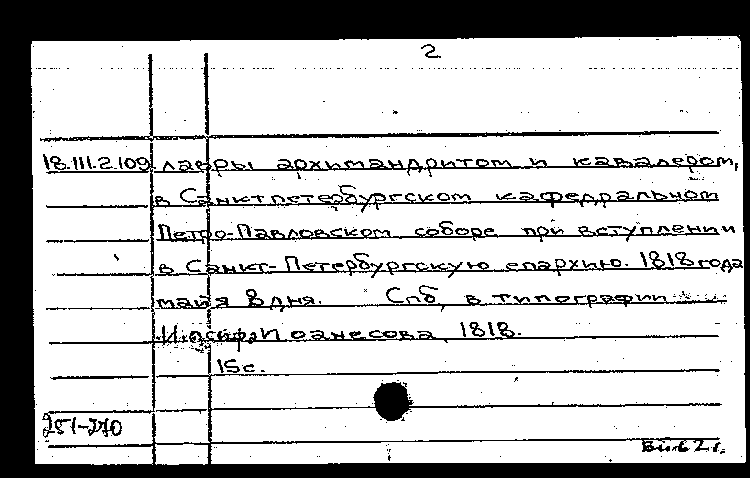 2
18.III.2.109 лавры архимандритом и кавалером,
в Санктпетербургском кафедральном
Петро-Павловском соборе при вступлении
в Санкт-Петербургскую епархию. 1818 года
майя 8 дня. Спб, в типографии
Иоанесова, 1818.
15с.
251-270